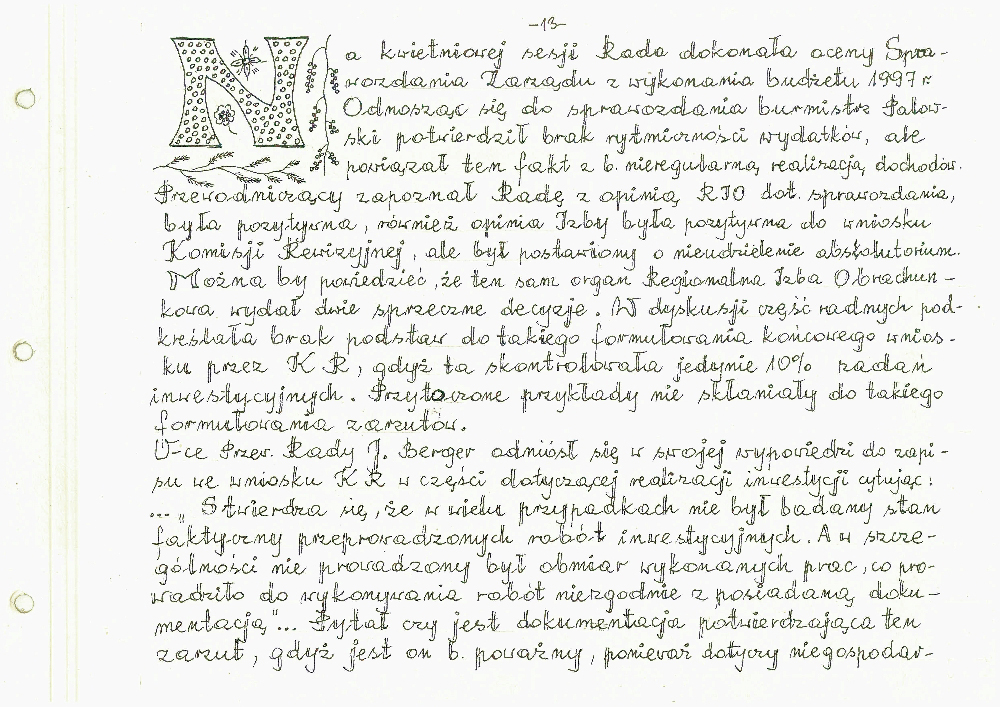 -13-
Na kwietniowej sesji Rada dokonała oceny Spra-
wozdania Zarządu z wykonania budżetu 1997 r
Odnosząc się do sprawozdania burmistrz Palow-
ski potwierdził brak rytmiczności wydatków, ale
powiązał ten fakt z b. nieregularną realizacją dochodów.
Przewodniczący zapoznał Radę z opinią RIO dot. sprawozdania,
była pozytywna, również opinia Izby była pozytywna do wniosku
Komisji Rewizyjnej, ale był postawiony o nieudzielenie absolutorium.
Można by powiedzieć, że ten sam organ Regionalna Izba Obrachun-
kowa wydał dwie sprzeczne decyzje. W dyskusji część radnych pod-
kreślała brak podstaw do takiego formułowania końcowego wnios-
ku przez K R, gdyż ta skontrolowała jedynie 10% zadań
inwestycyjnych. Przytoczone przykłady nie skłaniały do takiego
formułowania zarzutów.
V-ce Przew. Rady J. Berger odniósł się w swojej wypowiedzi do zapi-
su we wniosku K R w części dotyczącej realizacji inwestycji cytując:
... „ Stwierdza się, że w wielu przypadkach nie był badany stan
faktyczny przeprowadzonych robót inwestycyjnych. A w szcze-
gólności nie prowadzony był obmiar wykonanych prac, co pro-
wadziło do wykonywania robót niezgodnie z posiadaną doku-
mentacją"... Pytał czy jest dokumentacja potwierdzająca ten
zarzut, gdyż jest on b. poważny, ponieważ dotyczy niegospodar-